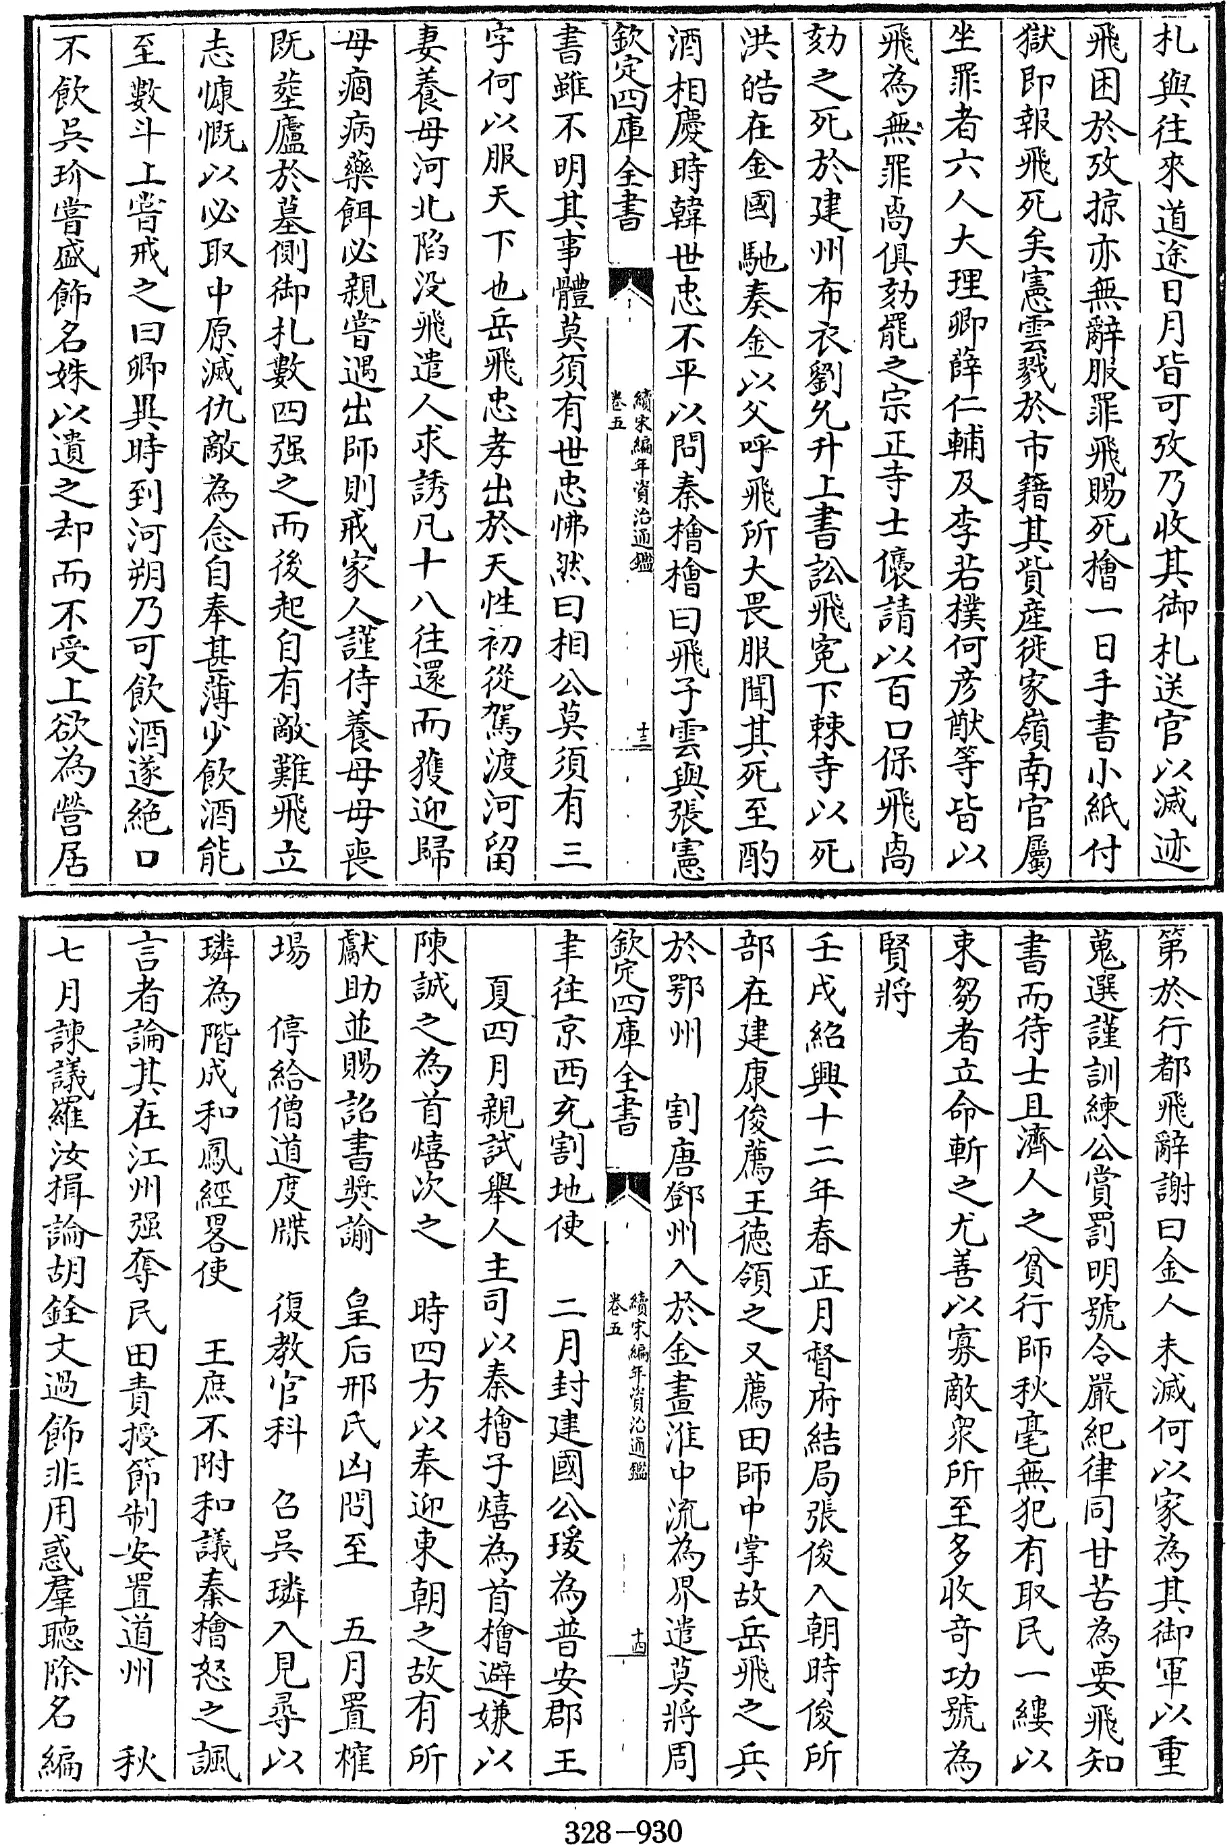 札與往來道途日月皆可攷乃收其御札送官以滅迹
飛困於攷掠亦無辭服罪飛賜死檜一日手書小紙付
獄即報飛死矣憲雲戮於市籍其貲産徙家嶺南官屬
坐罪者六人大理卿薛仁輔及李若樸何彦猷等皆以
飛為無罪卨俱劾罷之宗正寺士㒟請以百口保飛卨
劾之死於建州布衣劉允升上書訟飛寃下棘寺以死
洪皓在金國馳奏金以父呼飛所大畏服聞其死至酌
酒相慶時韓世忠不平以問秦檜檜曰飛子雲與張憲
欽定四庫全書
續宋編年資治通鑑
卷五
十三
書雖不明其事體莫須有世忠怫然曰相公莫須有三
字何以服天下也岳飛忠孝出於天性初從駕渡河留
妻養母河北陷没飛遣人求訪凡十八往還而獲迎歸
母痼病藥餌必親嘗遇出師則戒家人謹侍養母母喪
既塟廬於墓側御札數四强之而後起自有敵難飛立
志慷慨以必取中原滅仇敵為念自奉甚薄少飲酒能
至數斗上嘗戒之曰卿異時到河朔乃可飲酒遂絶口
不飲吳玠嘗盛飾名姝以遺之却而不受上欲為營居
第於行都飛辭謝曰金人未滅何以家為其御軍以重
蒐選謹訓練公賞罰明號令嚴紀律同甘苦為要飛知
書而待士且濟人之貧行師秋毫無犯有取民一縷以
束芻者立命斬之尤善以寡敵衆所至多收竒功號為
賢將
壬戌紹興十二年春正月督府結局張俊入朝時俊所
部在建康俊薦王德領之又薦田師中掌故岳飛之兵
於鄂州 割唐鄧州入於金畫淮中流為界遣莫將周
欽定四庫全書
續宋編年資治通鑑
卷五
十四
聿往京西充割地使 二月封建國公瑗為普安郡王
夏四月親試舉人主司以秦檜子熺為首檜避嫌以
陳誠之為首熺次之 時四方以奉迎東朝之故有所
獻助並賜詔書奬諭 皇后邢氏凶問至 五月置榷
場 停給僧道度牒 復教官科 召吳璘入見尋以
璘為階成和鳳經畧使 王庶不附和議秦檜怒之諷
言者論其在江州强奪民田責授節制安置道州 秋
七月諫議羅汝楫論胡銓文過飾非用惑羣聴除名編
328—930